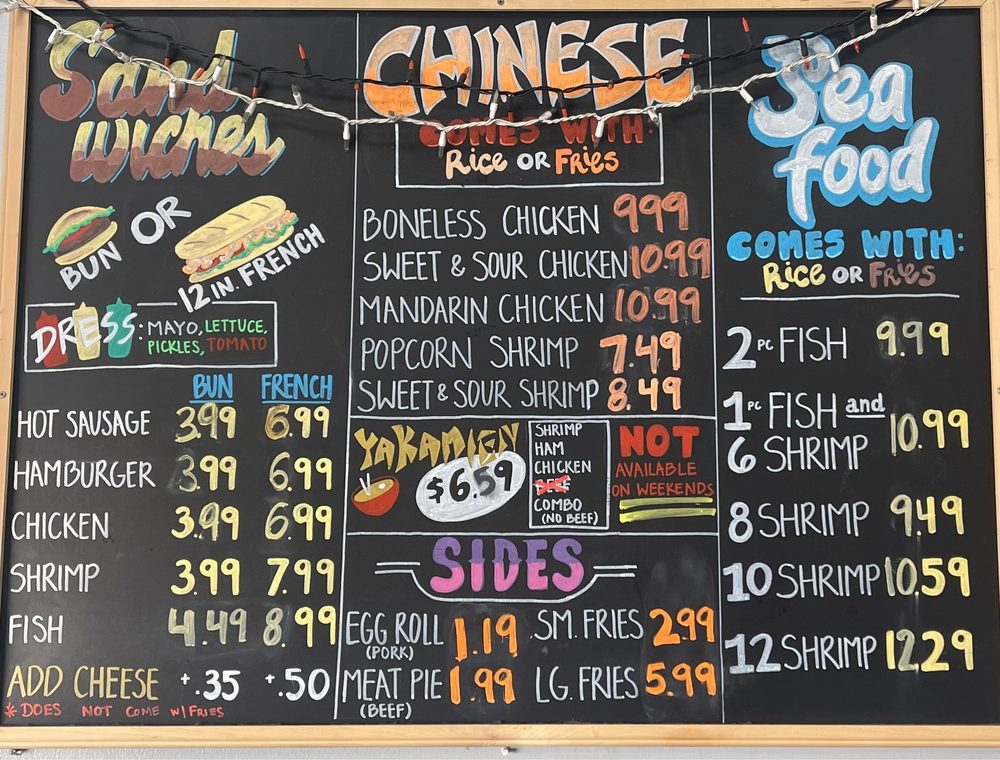 Sand
wiches
BUN OR 12 IN. FRENCH
DRESS: MAYO, LETTUCE,
PICKLES, TOMATO
BUN FRENCH
HOT SAUSAGE 3.99 6.99
HAMBURGER 3.99 6.99
CHICKEN 3.99 6.99
SHRIMP 3.99 7.99
FISH 4.49 8.99
ADD CHEESE +.35 +.50
* DOES NOT COME W/FRIES
CHINESE
COMES WITH:
Rice OR FRieS
BONELESS CHICKEN 999
SWEET & SOUR CHICKEN 10.99
MANDARIN CHICKEN 10.99
POPCORN SHRIMP 7.49
SWEET & SOUR SHRIMP 8.49
YAKAMIEN
$6.59
SHRIMP
HAM
CHICKEN
BEEF
COMBO
(NO BEEF)
NOT
AVAILABLE
ON WEEKENDS
SIDES
EGG ROLL 1.19
(PORK)
MEAT PIE 1.99
(BEEF)
SM. FRIES 2.99
LG. FRIES 5.99
Sea
food
COMES WITH:
Rice OR FRieS
2 PC FISH 9.99
1 PC FISH and
6 SHRIMP 10.99
8 SHRIMP 9.49
10 SHRIMP 10.59
12 SHRIMP 12.29